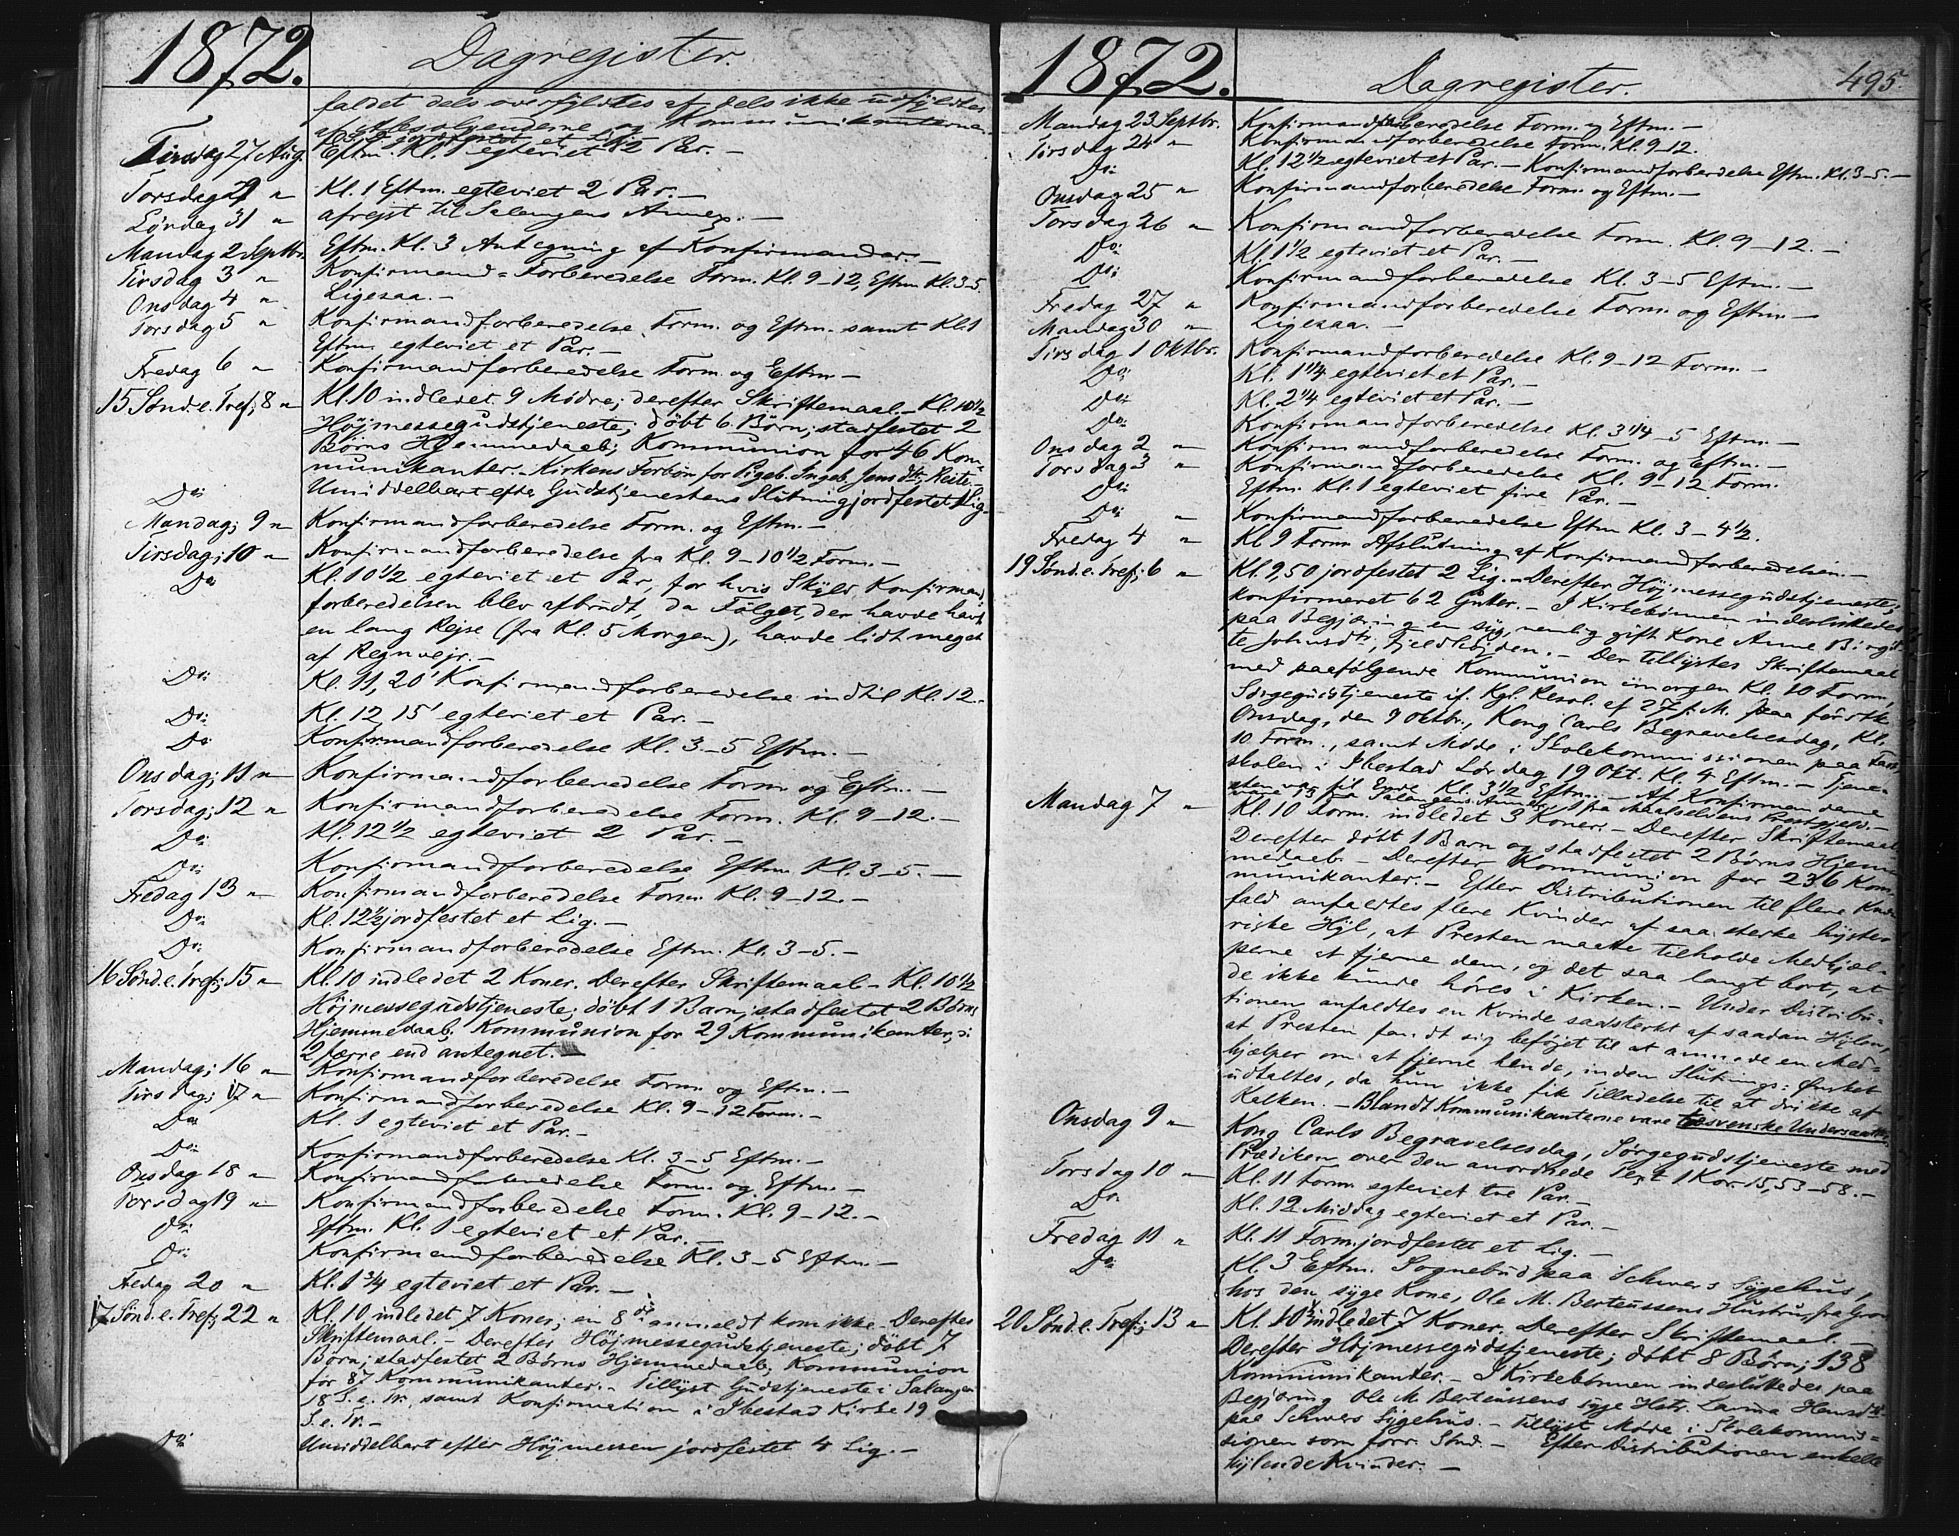 1872.
Dagregister.
faldet dels overfyldtes af dels ikke udfyldtes
af Absolvenderne og Kommunikanterne.
Tirsdag 27 Aug. Eftm. Kl. 1 egteviet 2 Par. —
Torsdag 29 " Kl. 1 Eftm. egteviet 2 Par. —
Lørdag 31 " afrejst til Salangens Annex. —
Mandag 2 Septbr. Eftm. Kl. 3 Antegning af Konfirmander. —
Tirsdag 3 " Konfirmand-Forberedelse Form. Kl. 9-12, Eftm. Kl. 3-5.
Onsdag 4 " Ligesaa. —
Torsdag 5 " Konfirmandforberedelse Form. og Eftm. samt Kl. 1
Eftm. egteviet et Par. —
Fredag 6 " Konfirmandforberedelse Form. og Eftm. —
15 Sønd. e. Tref; 8 " Kl. 10 indledet 9 Mødre; derefter Skriftemaal. — Kl. 10½
Højmessegudstjeneste; døbt 6 Børn; stadfestet 2
Børns Hjemmedaab; Kommunion for 46 Kom-
munikanter. — Kirkens Forbøn for Pigeb. Ingeb. Jensdtr,
Do: Umiddelbart efter Gudstjenestens Slutning jordfestet 1 Lig. —
Mandag; 9 " Konfirmandforberedelse Form. og Eftm. —
Tirsdag; 10 " Konfirmandforberedelse fra Kl. 9-10½ Form. —
Do Kl. 10½ egteviet et Par, for hvis Skyld Konfirmand-
forberedelsen blev afbrudt, da Følget, der havde havt
en lang Rejse (fra Kl. 5 Morgen), havde lidt meget
af Regnvejr. —
Do: Kl. 11,20' Konfirmandforberedelse indtil Kl. 12. —
Do: Kl. 12,15' egteviet et Par. —
Do Konfirmandforberedelse Kl. 3-5 Eftm. —
Onsdag; 11 " Konfirmandforberedelse Form. og Eftm. —
Torsdag; 12 " Konfirmandforberedelse Form. Kl. 9-12. —
Do: Kl. 12½ egteviet 2 Par. —
Do: Konfirmandforberedelse Eftm. Kl. 3-5. —
Fredag 13 " Konfirmandforberedelse Form. Kl. 9-12. —
Do: Kl. 12½ jordfestet et Lig. —
Do: Konfirmandforberedelse Eftm. Kl. 3-5. —
16 Sønd. e. Tref; 15 " Kl. 10 indledet 2 Koner. Derefter Skriftemaal. — Kl. 10½
Højmessegudstjeneste; døbt 1 Barn; stadfestet 2 Børns
Hjemmedaab; Kommunion for 29 Kommunikanter, ɔ:
2 færre end antegnet. —
Mandag; 16 " Konfirmandforberedelse Form. og Eftm. —
Tirsdag; 17 " Konfirmandforberedelse Kl. 9-12 Form. —
Do Kl. 1 egteviet et Par. —
Do: Konfirmandforberedelse Kl. 3-5 Eftm. —
Onsdag 18 " Konfirmandforberedelse Form. og Eftm. —
Torsdag 19 " Konfirmandforberedelse Form. Kl. 9-12. —
Do: Eftm. Kl. 1 egteviet et Par. —
Do: Konfirmandforberedelse Kl. 3-5 Eftm. —
Fredag 20 " Kl. 1¾ egteviet et Par. —
17 Sønd. e. Tref; 22 " Kl. 10 indledet 7 Koner; en 8de anmeldt kom ikke. Derefter
Skriftemaal. — Derefter Højmessegudstjeneste; døbt 7
Børn; stadfestet 2 Børns Hjemmedaab; Kommunion
for 87 Kommunikanter. — Tillyst Gudstjeneste i Salangen
18 S. e. Tr. samt Konfirmation i Ibestad Kirke 19
S. e. Tr. —
Do: Umiddelbart efter Højmessen jordfestet 4 Lig. —
1872.
Dagregister.
495.
Mandag 23 Septbr. Konfirmandforberedelse Form. og Eftm. —
Tirsdag 24 " Konfirmandforberedelse Form. Kl. 9-12.
Do: Kl. 12½ egteviet et Par. — Konfirmandforberedelse Eftm. Kl. 3-5. —
Onsdag 25 " Konfirmandforberedelse Form. og Eftm. —
Torsdag 26 " Konfirmandforberedelse Form. Kl. 9-12. —
Do: Kl. 1½ egteviet et Par. —
Do: Konfirmandforberedelse Kl. 3-5 Eftm. —
Fredag 27 " Konfirmandforberedelse Form. og Eftm. —
Mandag 30 " Ligesaa. —
Tirsdag 1 Oktbr. Konfirmandforberedelse Kl. 9-12 Form. —
Do: Kl. 1¼ egteviet et Par. —
Do: Kl. 2¼ egteviet et Par. —
Do: Konfirmandforberedelse Kl. 3¼-5 Eftm. —
Onsdag 2 " Konfirmandforberedelse Form. og Eftm. —
Torsdag 3 " Konfirmandforberedelse Kl. 9-12 Form.
Do: Eftm. Kl. 1 egteviet fire Par. —
Do: " Konfirmandforberedelse Eftm Kl. 3-4½.
Fredag 4 " Kl 9 Form. Afslutning af Konfirmandforberedelsen. —
19 Sønd. e. Tref; 6 " Kl. 9,50 jordfestet 2 Lig. — Derefter Højmessegudstjeneste;
konfirmeret 62 Gutter. — I Kirkebønnen indesluttedes
paa Begjæring en syg, nemlig gift Kone Anne Birgit-
te Johnsdtr, Fjeldhøjden. — Der tillystes Skriftemaal
med paafølgende Kommunion imorgen Kl. 10 Form.,
Sørgegudstjeneste if. Kgl. Resol. af 27 f. M. paa førstk.
Onsdag, den 9 Oktbr., Kong Carls Begravelsesdag, Kl.
10 Form., samt Møde i Skolekommissionen paa Fast-
skolen i Ibestad Lørdag 19 Okt. Kl. 4 Eftm. — Tjene-
sten var til Ende Kl. 3½ Eftm. — Af Konfirmanderne
vare fra Salangens Annex, 1 fra Maalselvens Prestegjeld. —
Mandag 7 " Kl. 10 Form. indledet 3 Koner. — Derefter Skriftemaal.
Derefter døbt 1 Barn og stadfestet 2 Børns Hjem-
medaab. — Derefter Kommunion for 236 Kom-
munikanter. — Efter Distributionen til flere Knæ-
fald anfaldtes flere Kvinder af saa sterke hyste-
riske Hyl, at Presten maatte tilholde Medhjæl-
perne at fjerne dem, og det saa langt bort, at
de ikke kunde høres i Kirken. — Under Distribu-
tionen anfaldtes en Kvinde saa sterkt af saadan Hylen,
at Presten fandt sig beføjet til at anmode en Med-
hjælper om at fjerne hende, inden Slutnings-Ønsket
udtaltes, da hun ikke fik Tilladelse til at drikke af
Kalken. — Blandt Kommunikanterne vare to svenske Undersaatter.
Onsdag 9 " Kong Carls Begravelsesdag, Sørgegudstjeneste med
Prædiken over den anordnede Text 1 Kor. 15,53-58. —
Torsdag 10 " Kl. 11 Form. egteviet tre Par. —
Do Kl. 12 Middag egteviet et Par. —
Fredag 11 " Kl. 11 Form. jordfestet et Lig. —
Do Kl. 3 Eftm. Sognebud paa Schwers Sygehus,
hos den syge Kone, Ole M. Berteussens Hustru, fra
20 Sønd. e. Tref; 13 " Kl. 10¼ indledet 7 Koner. Derefter Skriftemaal. —
Derefter Højmessegudstjeneste; døbt 8 Børn; 138
Kommunikanter. — I Kirkebønnen indesluttedes paa
Begjæring Ole M. Berteussens syge Hstr. Lavina Hansdtr
paa Schwers Sygehus. — Tillyst Møde i Skolekommis-
sionen som forr. Snd. — Efter Distributionen enkelte
hylende Kvinder. —